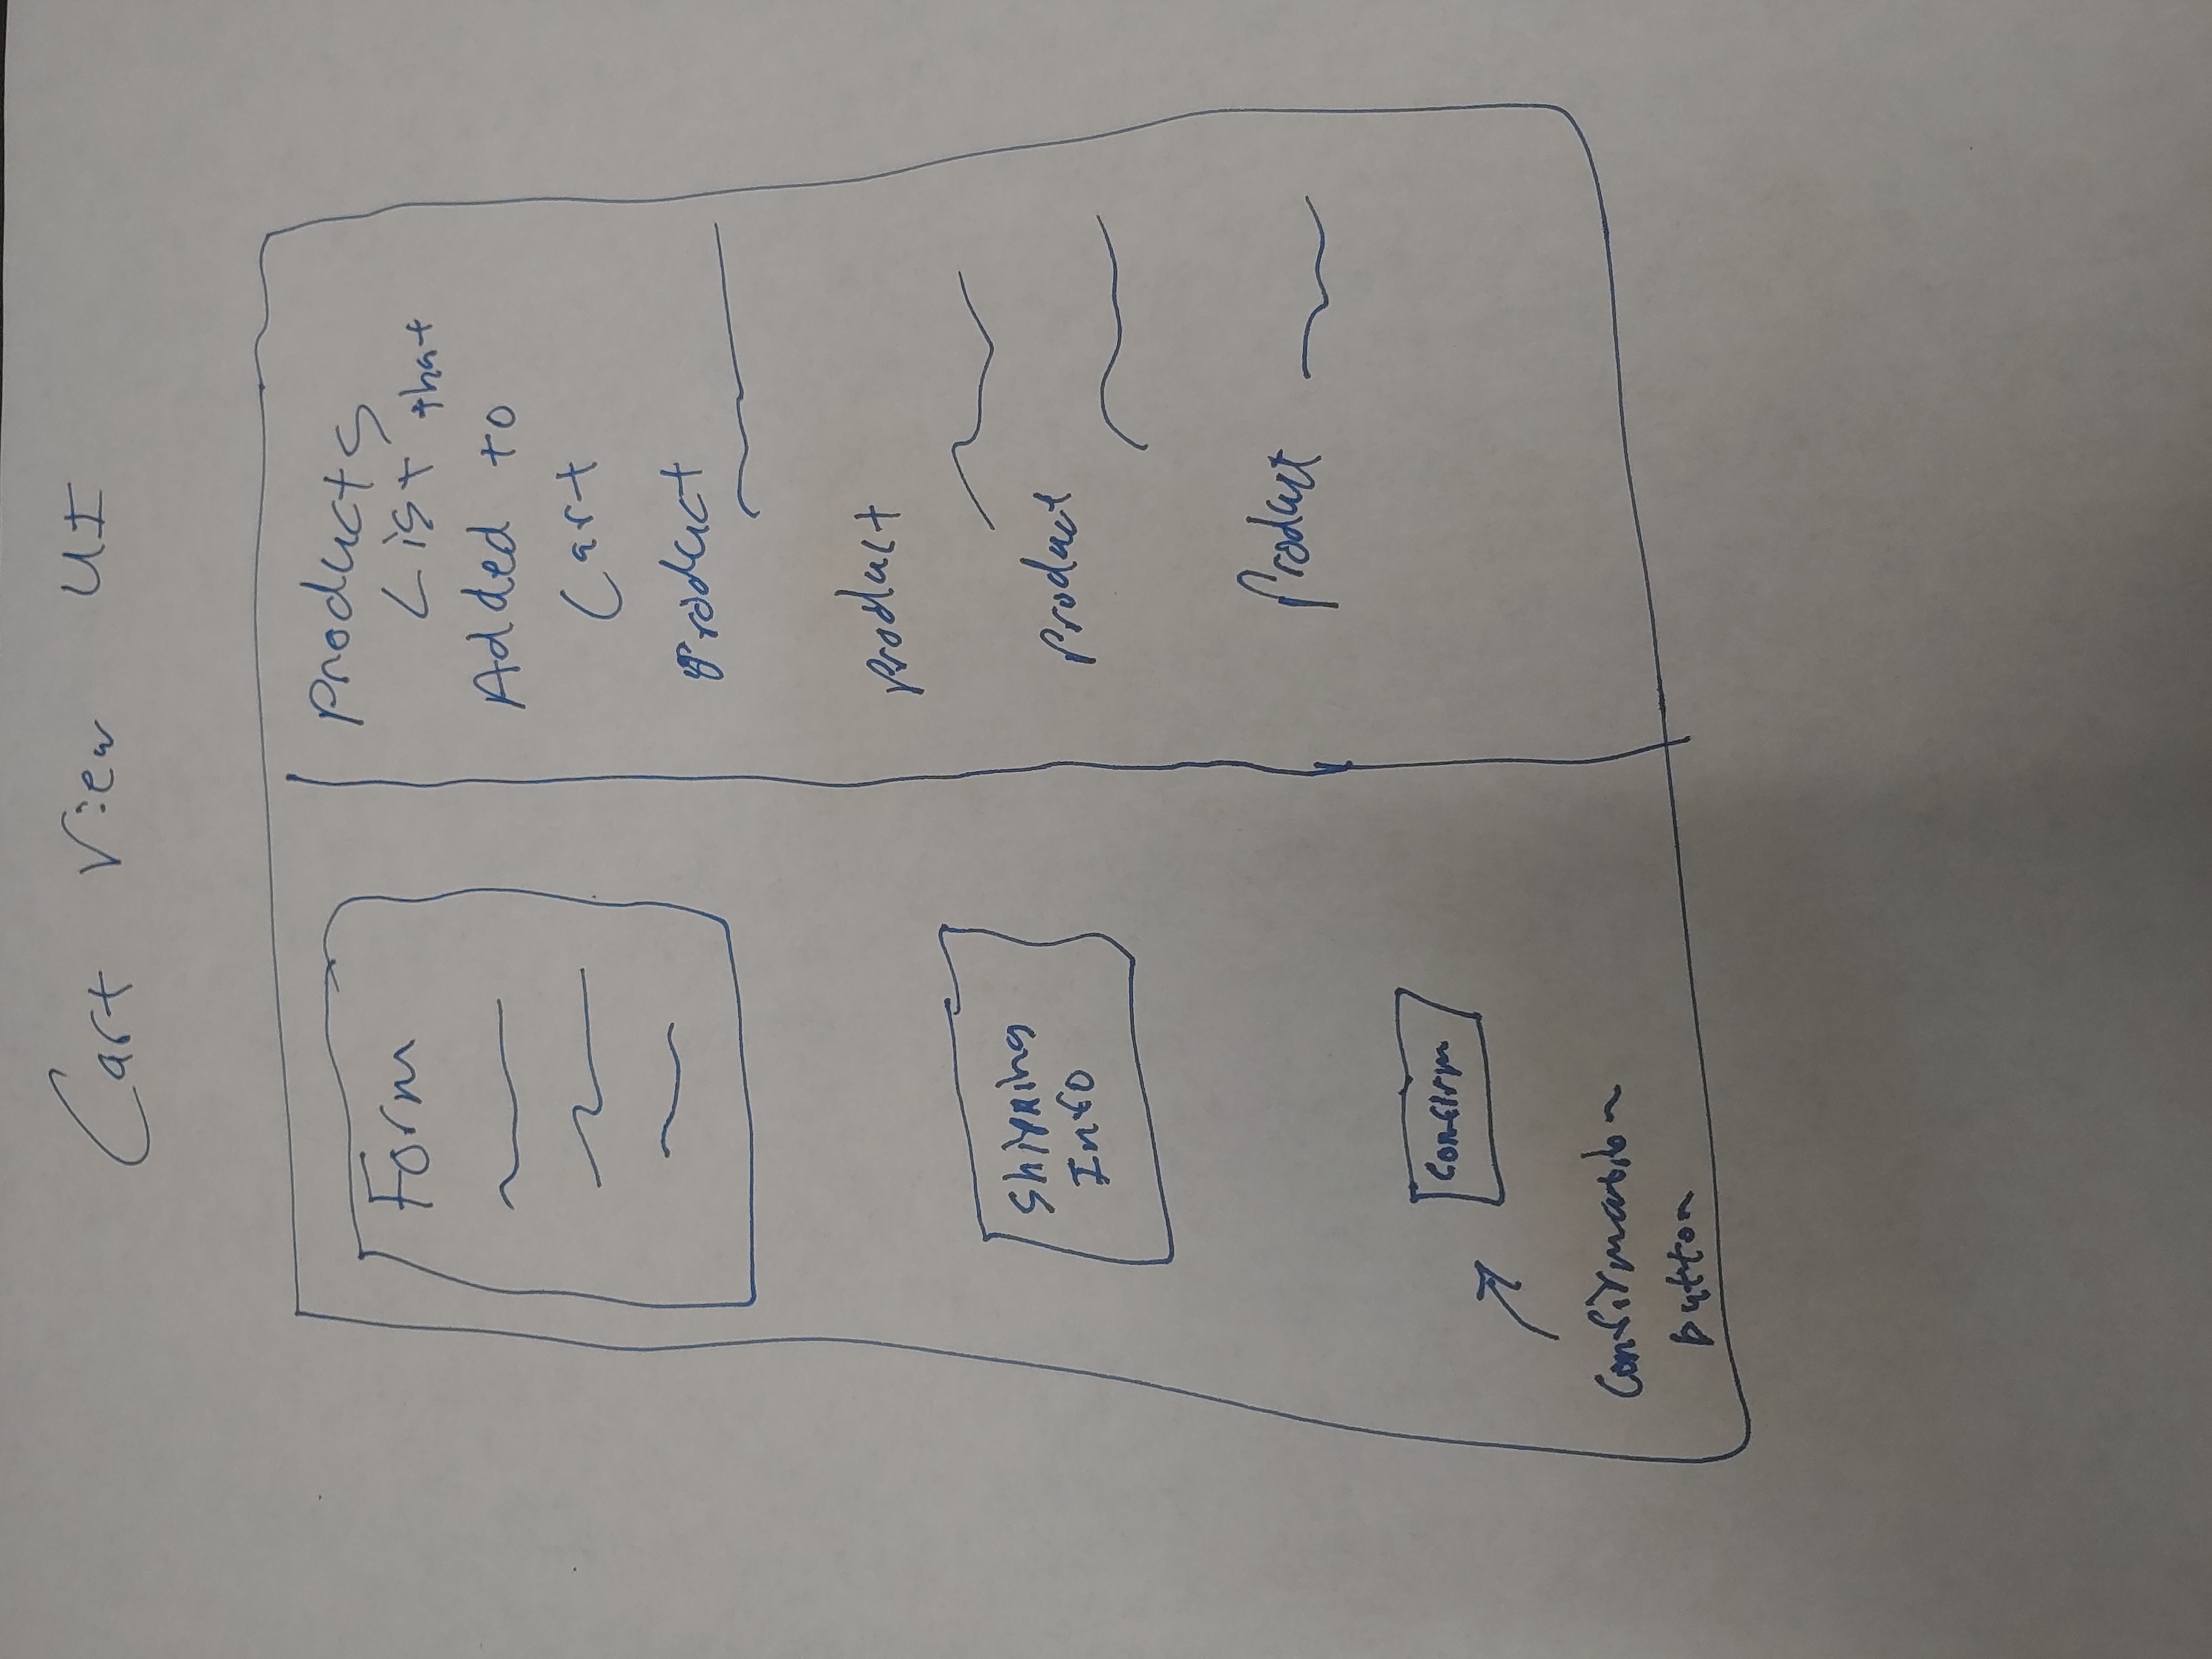 Cart View UI
Form
Shipping
Info
Confirm
Confirmation
button
Products
List that
Added to
Cart
Product
product
product
Product